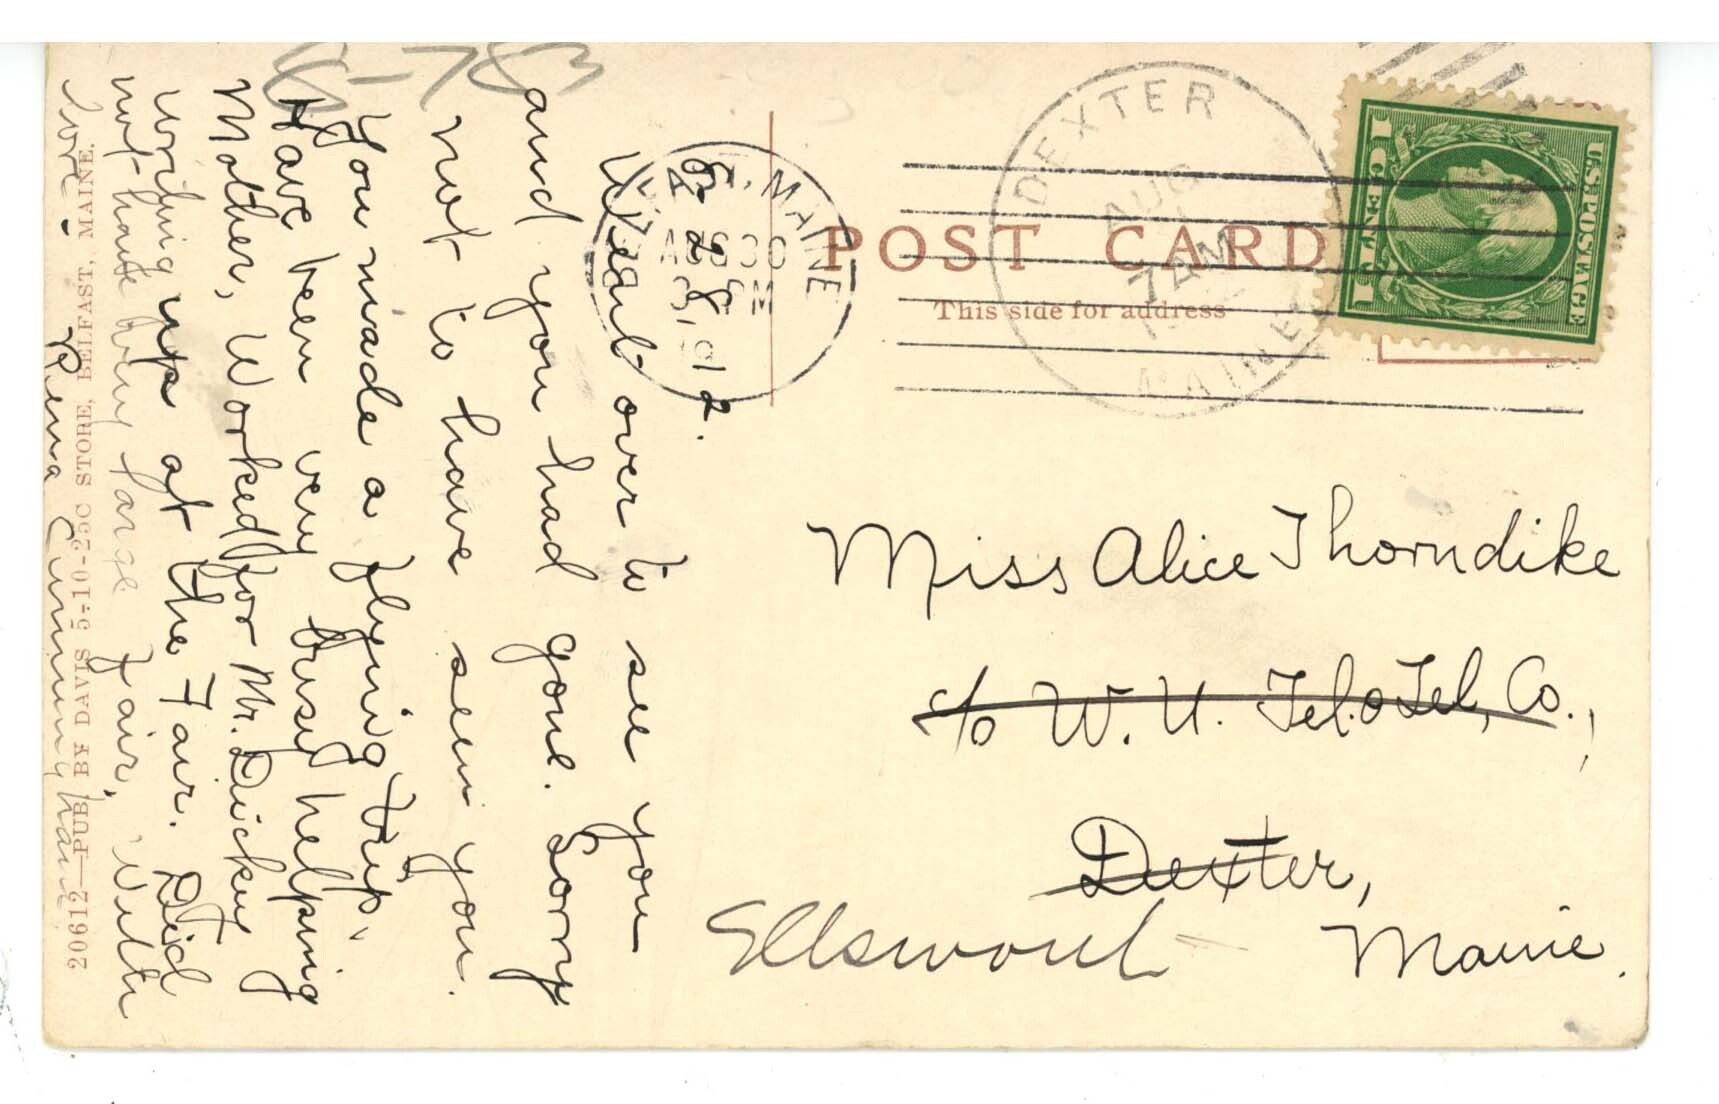 8-28,1912.
Went over to see you
and you had gone. Sorry
not to have seen you.
You made a flying trip.
Have been very busy helping
Mother, Worked for Mr. Dickey
working up at the Fair. Did
not have very large fair, With
love -
Rena Cunningham
20612—PUB. BY DAVIS 5-10-25C STORE, BELFAST, MAINE.
MAINE
AUG 30
DEXTER
AUG
7 AM
MAINE
U.S. POSTAGE
1 CENT 1
POST CARD
This side for address
Miss Alice Thorndike
c/o W. U. Tel. & Tel, Co.,
Dexter,
Ellsworth
Maine.